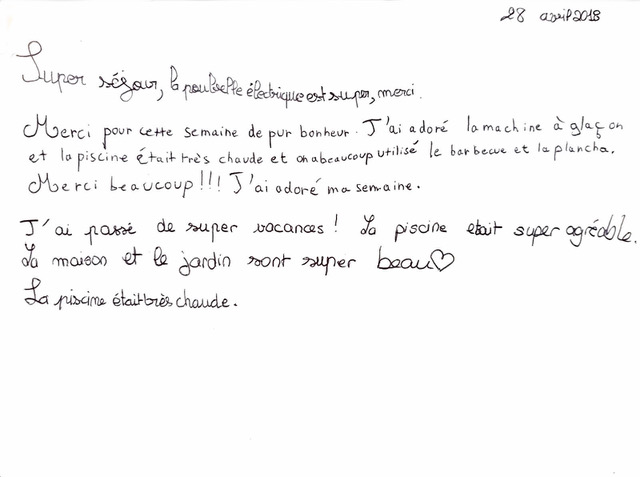 28 avril 2018
Super séjour, la poubelle électrique est super, merci.
Merci pour cette semaine de pur bonheur. J'ai adoré la machine à glaçon
et la piscine était très chaude et on a beaucoup utilisé le barbecue et la plancha.
Merci beaucoup!!! J'ai adoré ma semaine.
J'ai passé de super vacances! La piscine etait super agréable.
La maison et le jardin sont super beau♡
La piscine était très chaude.